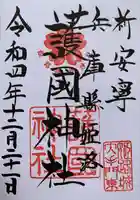 祈安寧
兵庫縣姫路
護國神社
令和四年十二月二十一日